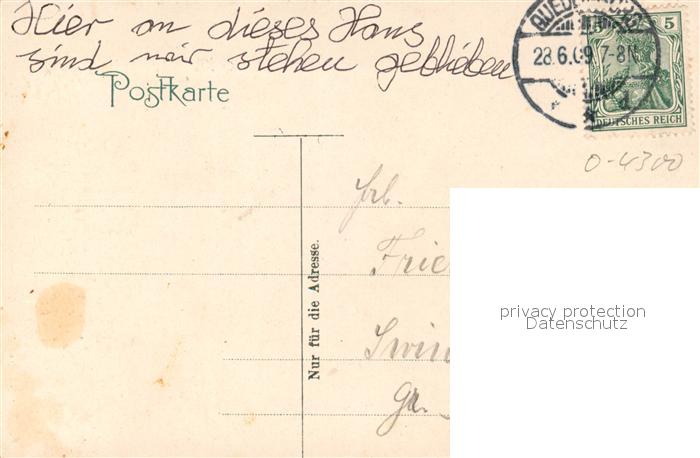 Hier an dieses Haus
sind wir stehen geblieben
Postkarte
QUEDLINBURG
23.6.09. 7-8N.
5 5
DEUTSCHES REICH
0-4300
Frl.
Frie
Nur für die Adresse.
Swin
privacy protection
Datenschutz